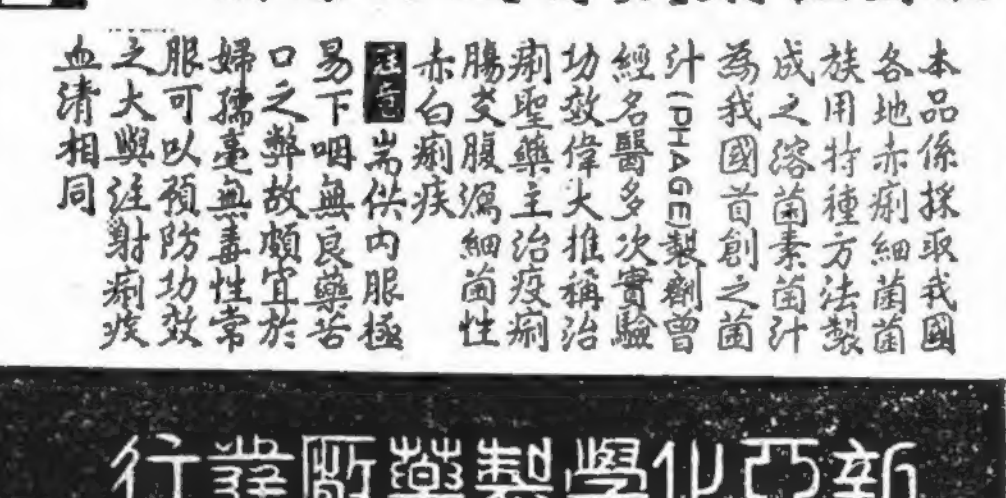 本品係採取我國
各地赤痢細菌菌
族用特種方法製
成之溶菌素菌汁
為我國首創之菌
汁(PHAGE)製劑曾
經名醫多次實驗
功效偉大推稱治
痢聖藥主治疫痢
腸炎腹瀉細菌性
赤白痢疾
注意 耑供內服極
易下咽無良藥苦
口之弊故頗宜於
婦孺毫無毒性常
服可以預防功效
之大與注射痢疾
血清相同
新亞化學製藥廠發行